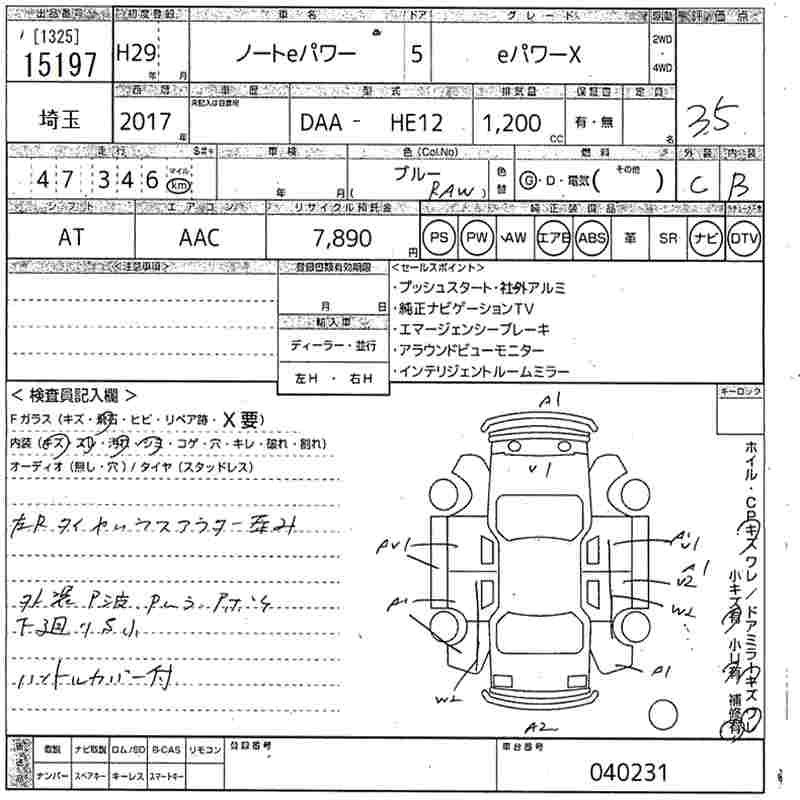 出品番号 初度登録 車名 ドア グレード 駆動 評価点
[1325]
15197 H29 年 月 ノートeパワー 5 eパワーX 2WD ・ 4WD
埼玉 西暦 車歴 型式 排気量 保証書 定員 3.5
未記入は自家用
2017 年 DAA - HE12 1,200 CC 有・無 名
走行 S車キ 車検 色(Col.No) 燃料 外装 内装
47346 マイル km 年 月 ブルー ( RAW ) 色替 G・D・電気( その他 ) C B
シフト エアコン リサイクル預託金 純正装備品
AT AAC 7,890 円 PS PW AW エアB ABS 革 SR ナビ DTV
<注意事項> 登録書類有効期限 <セールスポイント>
月 日 ・プッシュスタート・社外アルミ
輸入車 ・純正ナビゲーションTV
ディーラー・並行 ・エマージェンシーブレーキ
左H ・ 右H ・アラウンドビューモニター
・インテリジェントルームミラー
<検査員記入欄> キーロック
Fガラス(キズ・飛石・ヒビ・リペア跡・X要)
内装(キズ・スレ・汚れ・シミ・コゲ・穴・キレ・破れ・割れ)
オーディオ(無し・穴)/タイヤ(スタッドレス)
A1
V1
AV1
A1
W2
A1
V1
A1
U2
W2
A1
A2
ホイル・CPキズ ワレ/ドアミラーキズ ワレ
小キズ有 小U有 補修有
左Rタイヤハウスアウター歪み
下廻りS小
ハンドルカバー付
取説 ナビ取説 ロム/SD B-CAS リモコン 登録番号 車台番号
ナンバー スペアキー キーレス スマートキー 040231